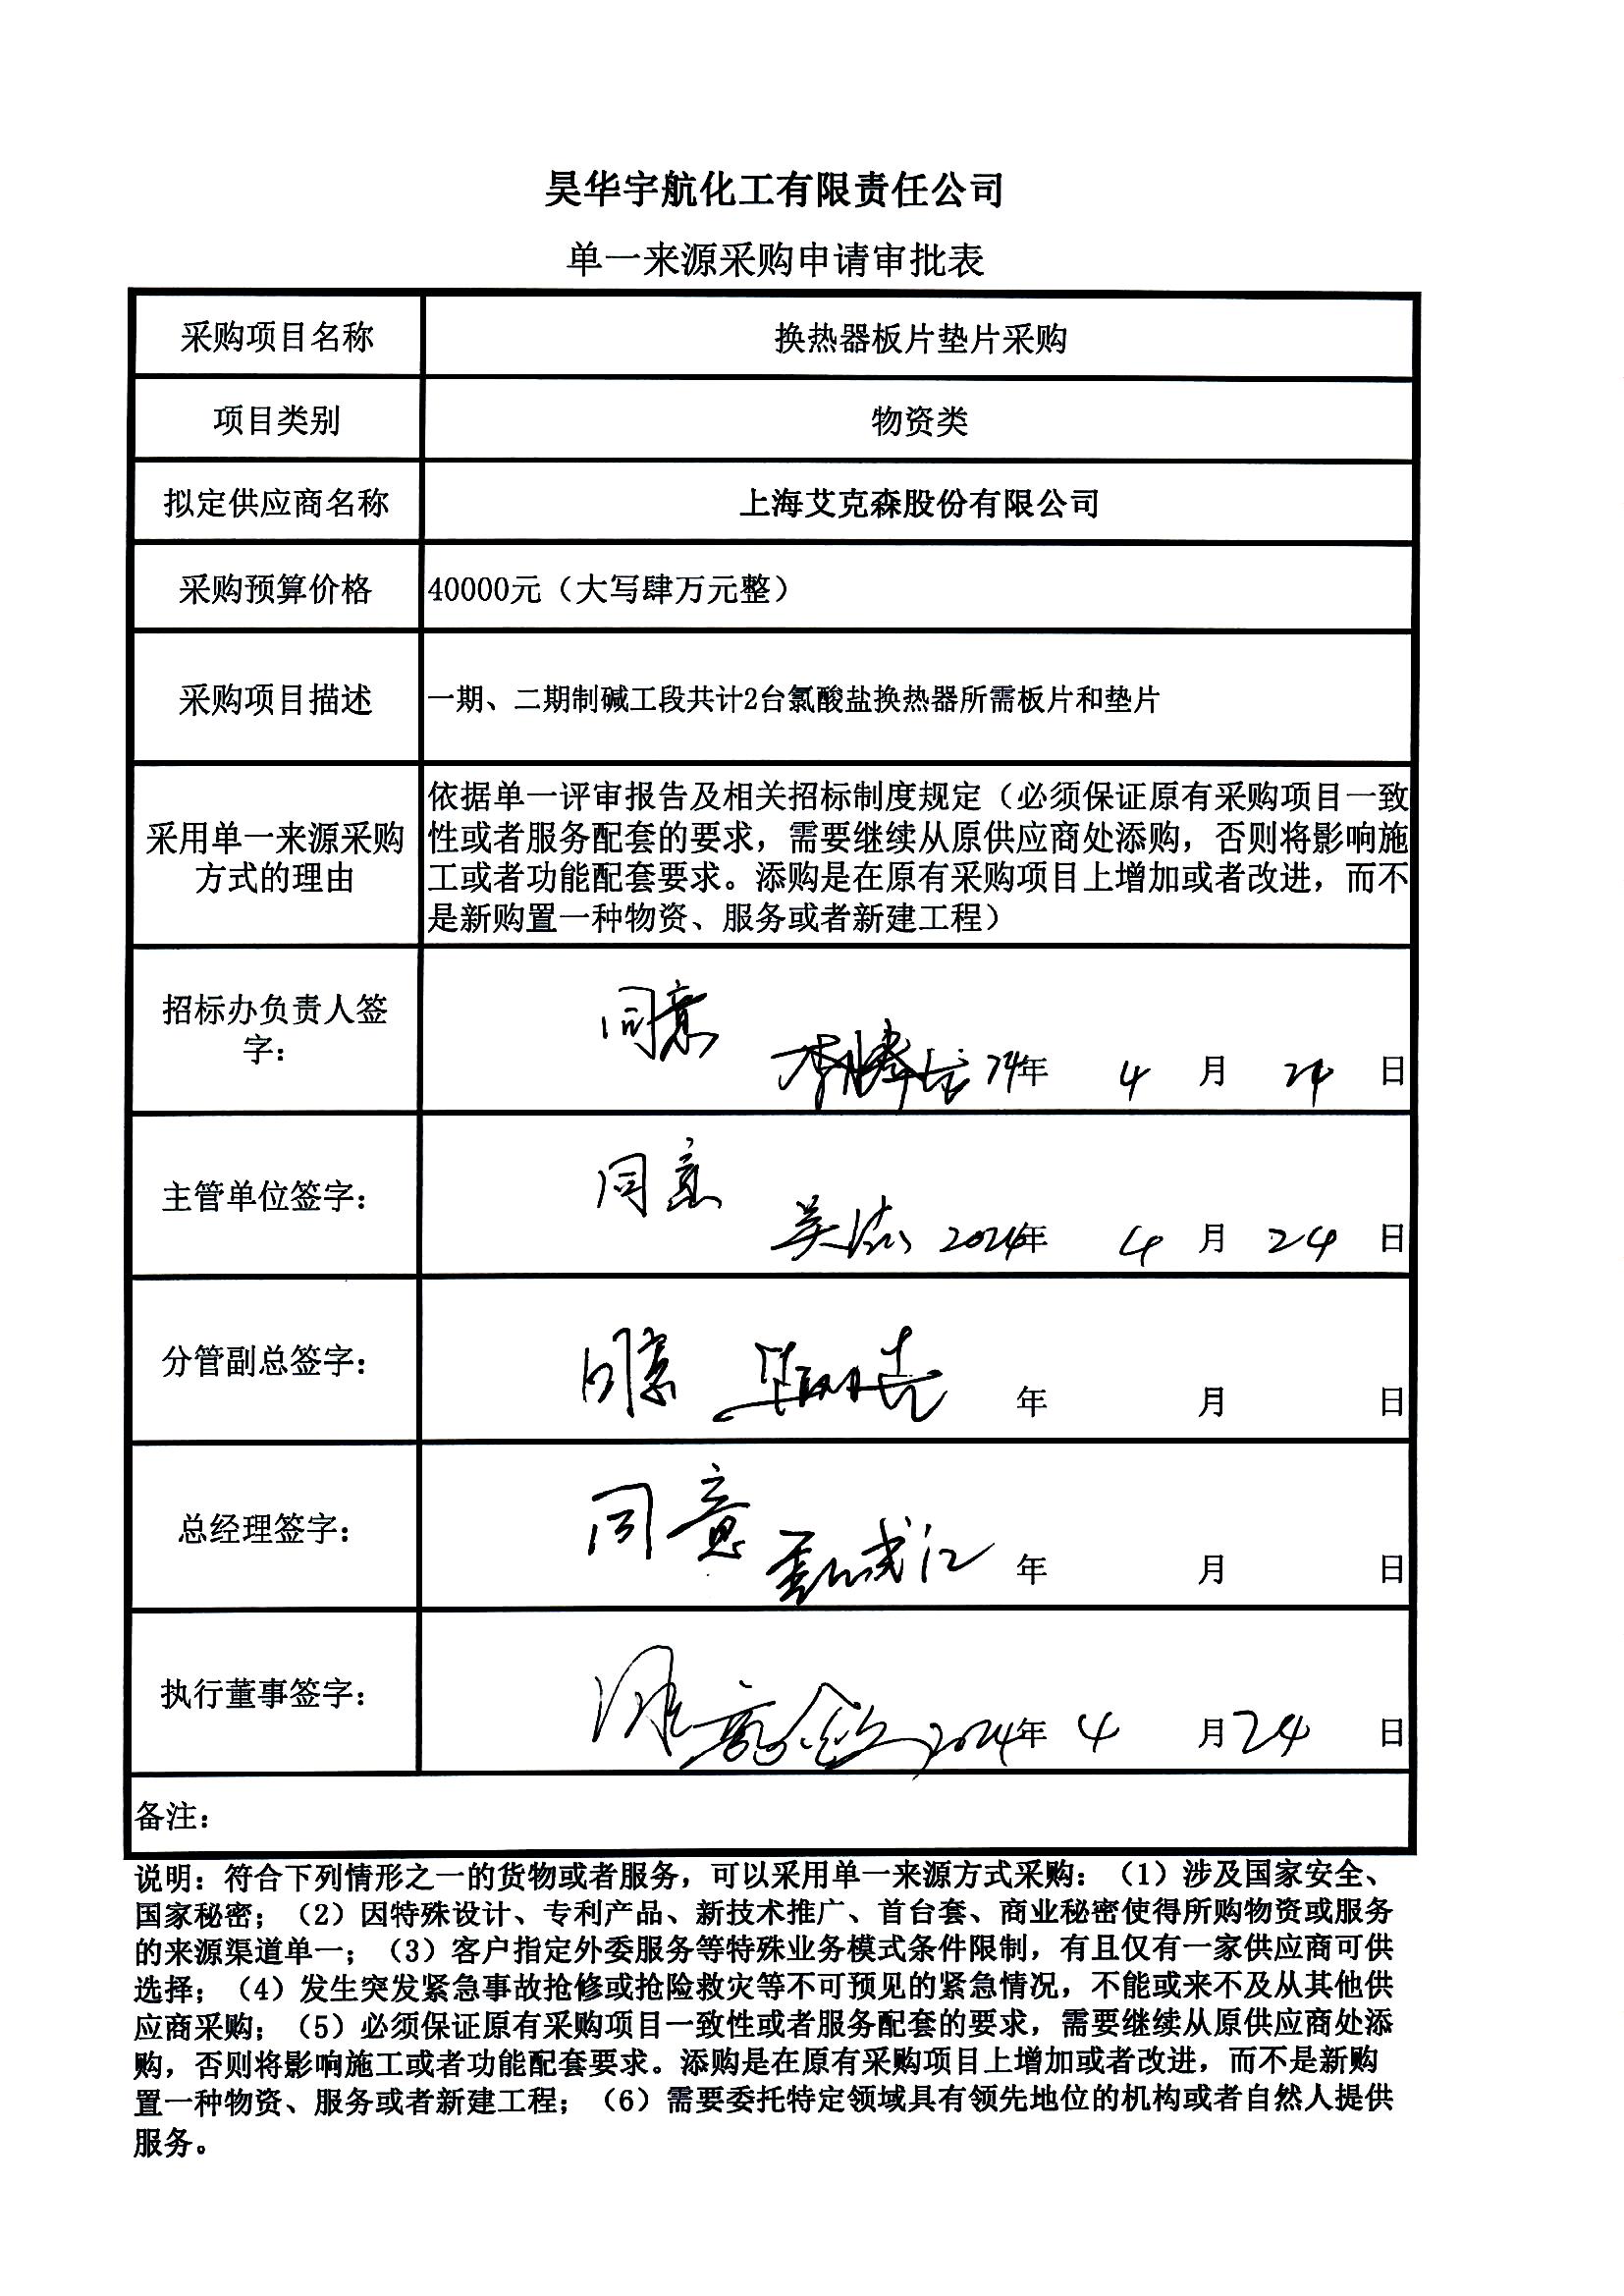 昊华宇航化工有限责任公司
单一来源采购申请审批表
采购项目名称 换热器板片垫片采购
项目类别 物资类
拟定供应商名称 上海艾克森股份有限公司
采购预算价格 40000元（大写肆万元整）
采购项目描述 一期、二期制碱工段共计2台氯酸盐换热器所需板片和垫片
采用单一来源采购
方式的理由
依据单一评审报告及相关招标制度规定（必须保证原有采购项目一致
性或者服务配套的要求，需要继续从原供应商处添购，否则将影响施
工或者功能配套要求。添购是在原有采购项目上增加或者改进，而不
是新购置一种物资、服务或者新建工程）
招标办负责人签
字：
同意
年 4 月 24 日
主管单位签字：
同意
2024年 4 月 24 日
分管副总签字：
同意
年 月 日
总经理签字：
同意
年 月 日
执行董事签字：
2024年 4 月 24 日
备注：
说明：符合下列情形之一的货物或者服务，可以采用单一来源方式采购：（1）涉及国家安全、
国家秘密；（2）因特殊设计、专利产品、新技术推广、首台套、商业秘密使得所购物资或服务
的来源渠道单一；（3）客户指定外委服务等特殊业务模式条件限制，有且仅有一家供应商可供
选择；（4）发生突发紧急事故抢修或抢险救灾等不可预见的紧急情况，不能或来不及从其他供
应商采购；（5）必须保证原有采购项目一致性或者服务配套的要求，需要继续从原供应商处添
购，否则将影响施工或者功能配套要求。添购是在原有采购项目上增加或者改进，而不是新购
置一种物资、服务或者新建工程；（6）需要委托特定领域具有领先地位的机构或者自然人提供
服务。